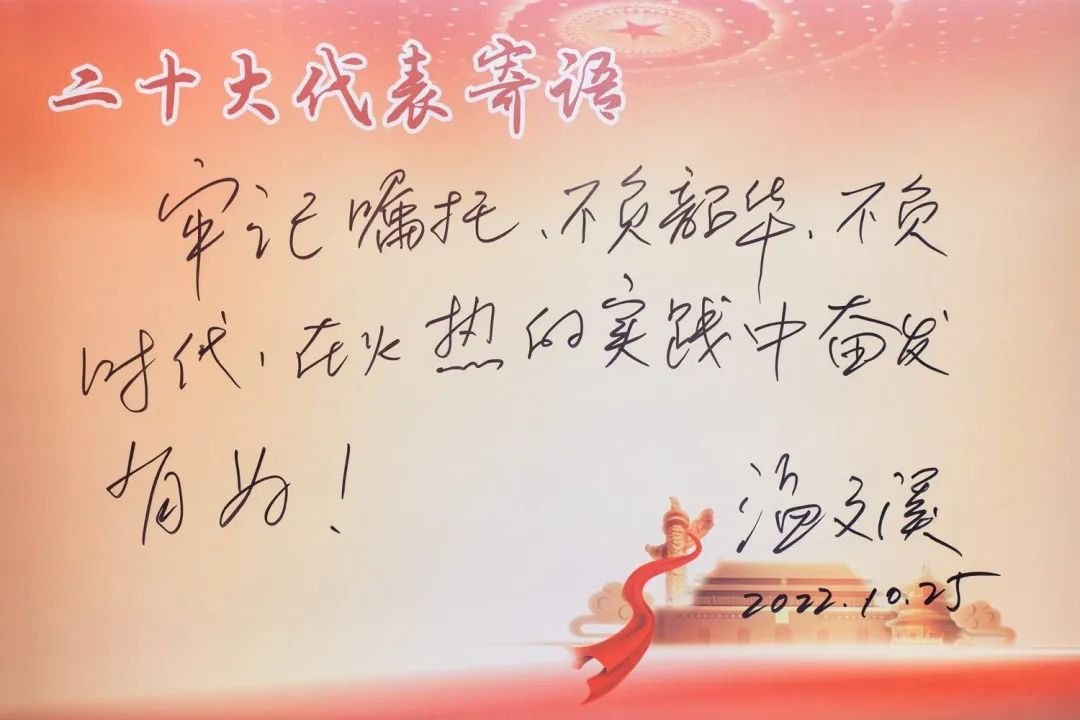 二十大代表寄语
牢记嘱托、不负韶华、不负
时代，在火热的实践中奋发
有为！
温文溪
2022.10.25